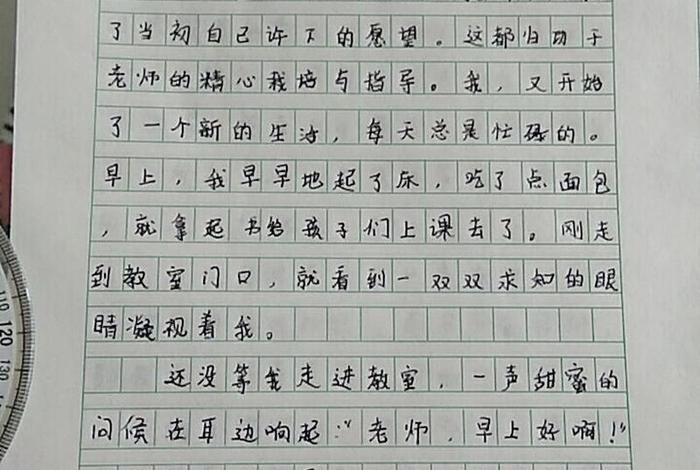 了当初自己许下的愿望。这都归功于
老师的精心栽培与指导。我，又开始
了一个新的生活，每天总是忙碌的。
早上，我早早地起了床，吃了点面包
，就拿起书给孩子们上课去了。刚走
到教室门口，就看到一双双求知的眼
睛凝视着我。
还没等我走进教室，一声甜蜜的
问候在耳边响起："老师，早上好啊！"
110
120
130